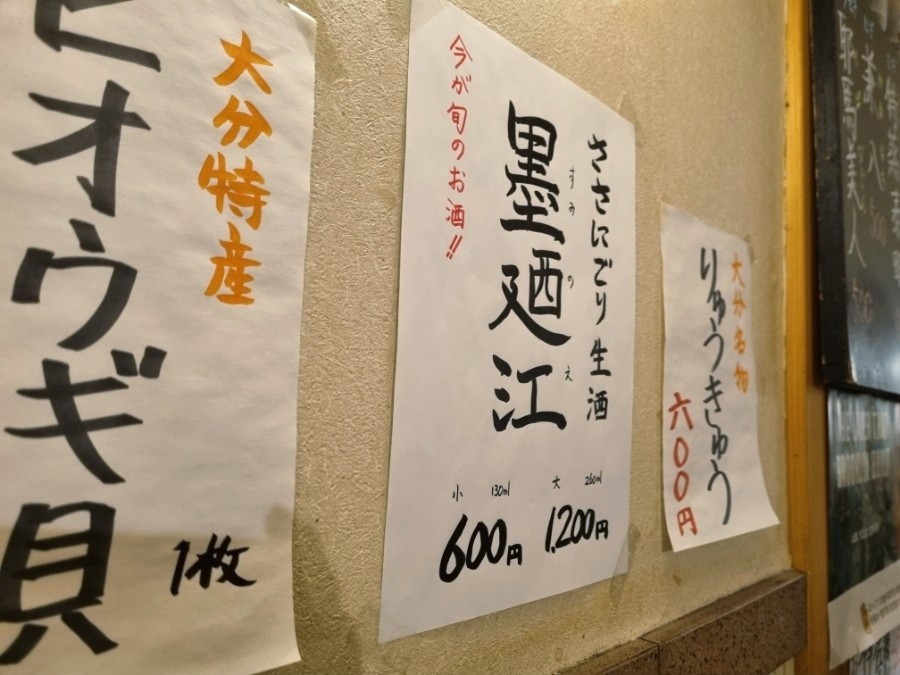 大分特産
ヒオウギ貝
1枚
ささにごり生酒
墨廼江
すみのえ
今が旬のお酒!!
小 130ml
600円
大 260ml
1,200円
大分名物
りゅうきゅう
六〇〇円